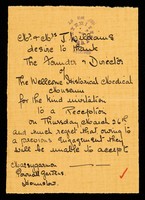 Mr & Mrs J Williams
desire to thank
The Founder & Director
of
The Wellcome Historical Medical
Museum
for the kind invitation
to a Reception
on Thursday March 26th
and much regret that owing to
a previous engagement they
will be unable to accept
Gardens
Hounslow